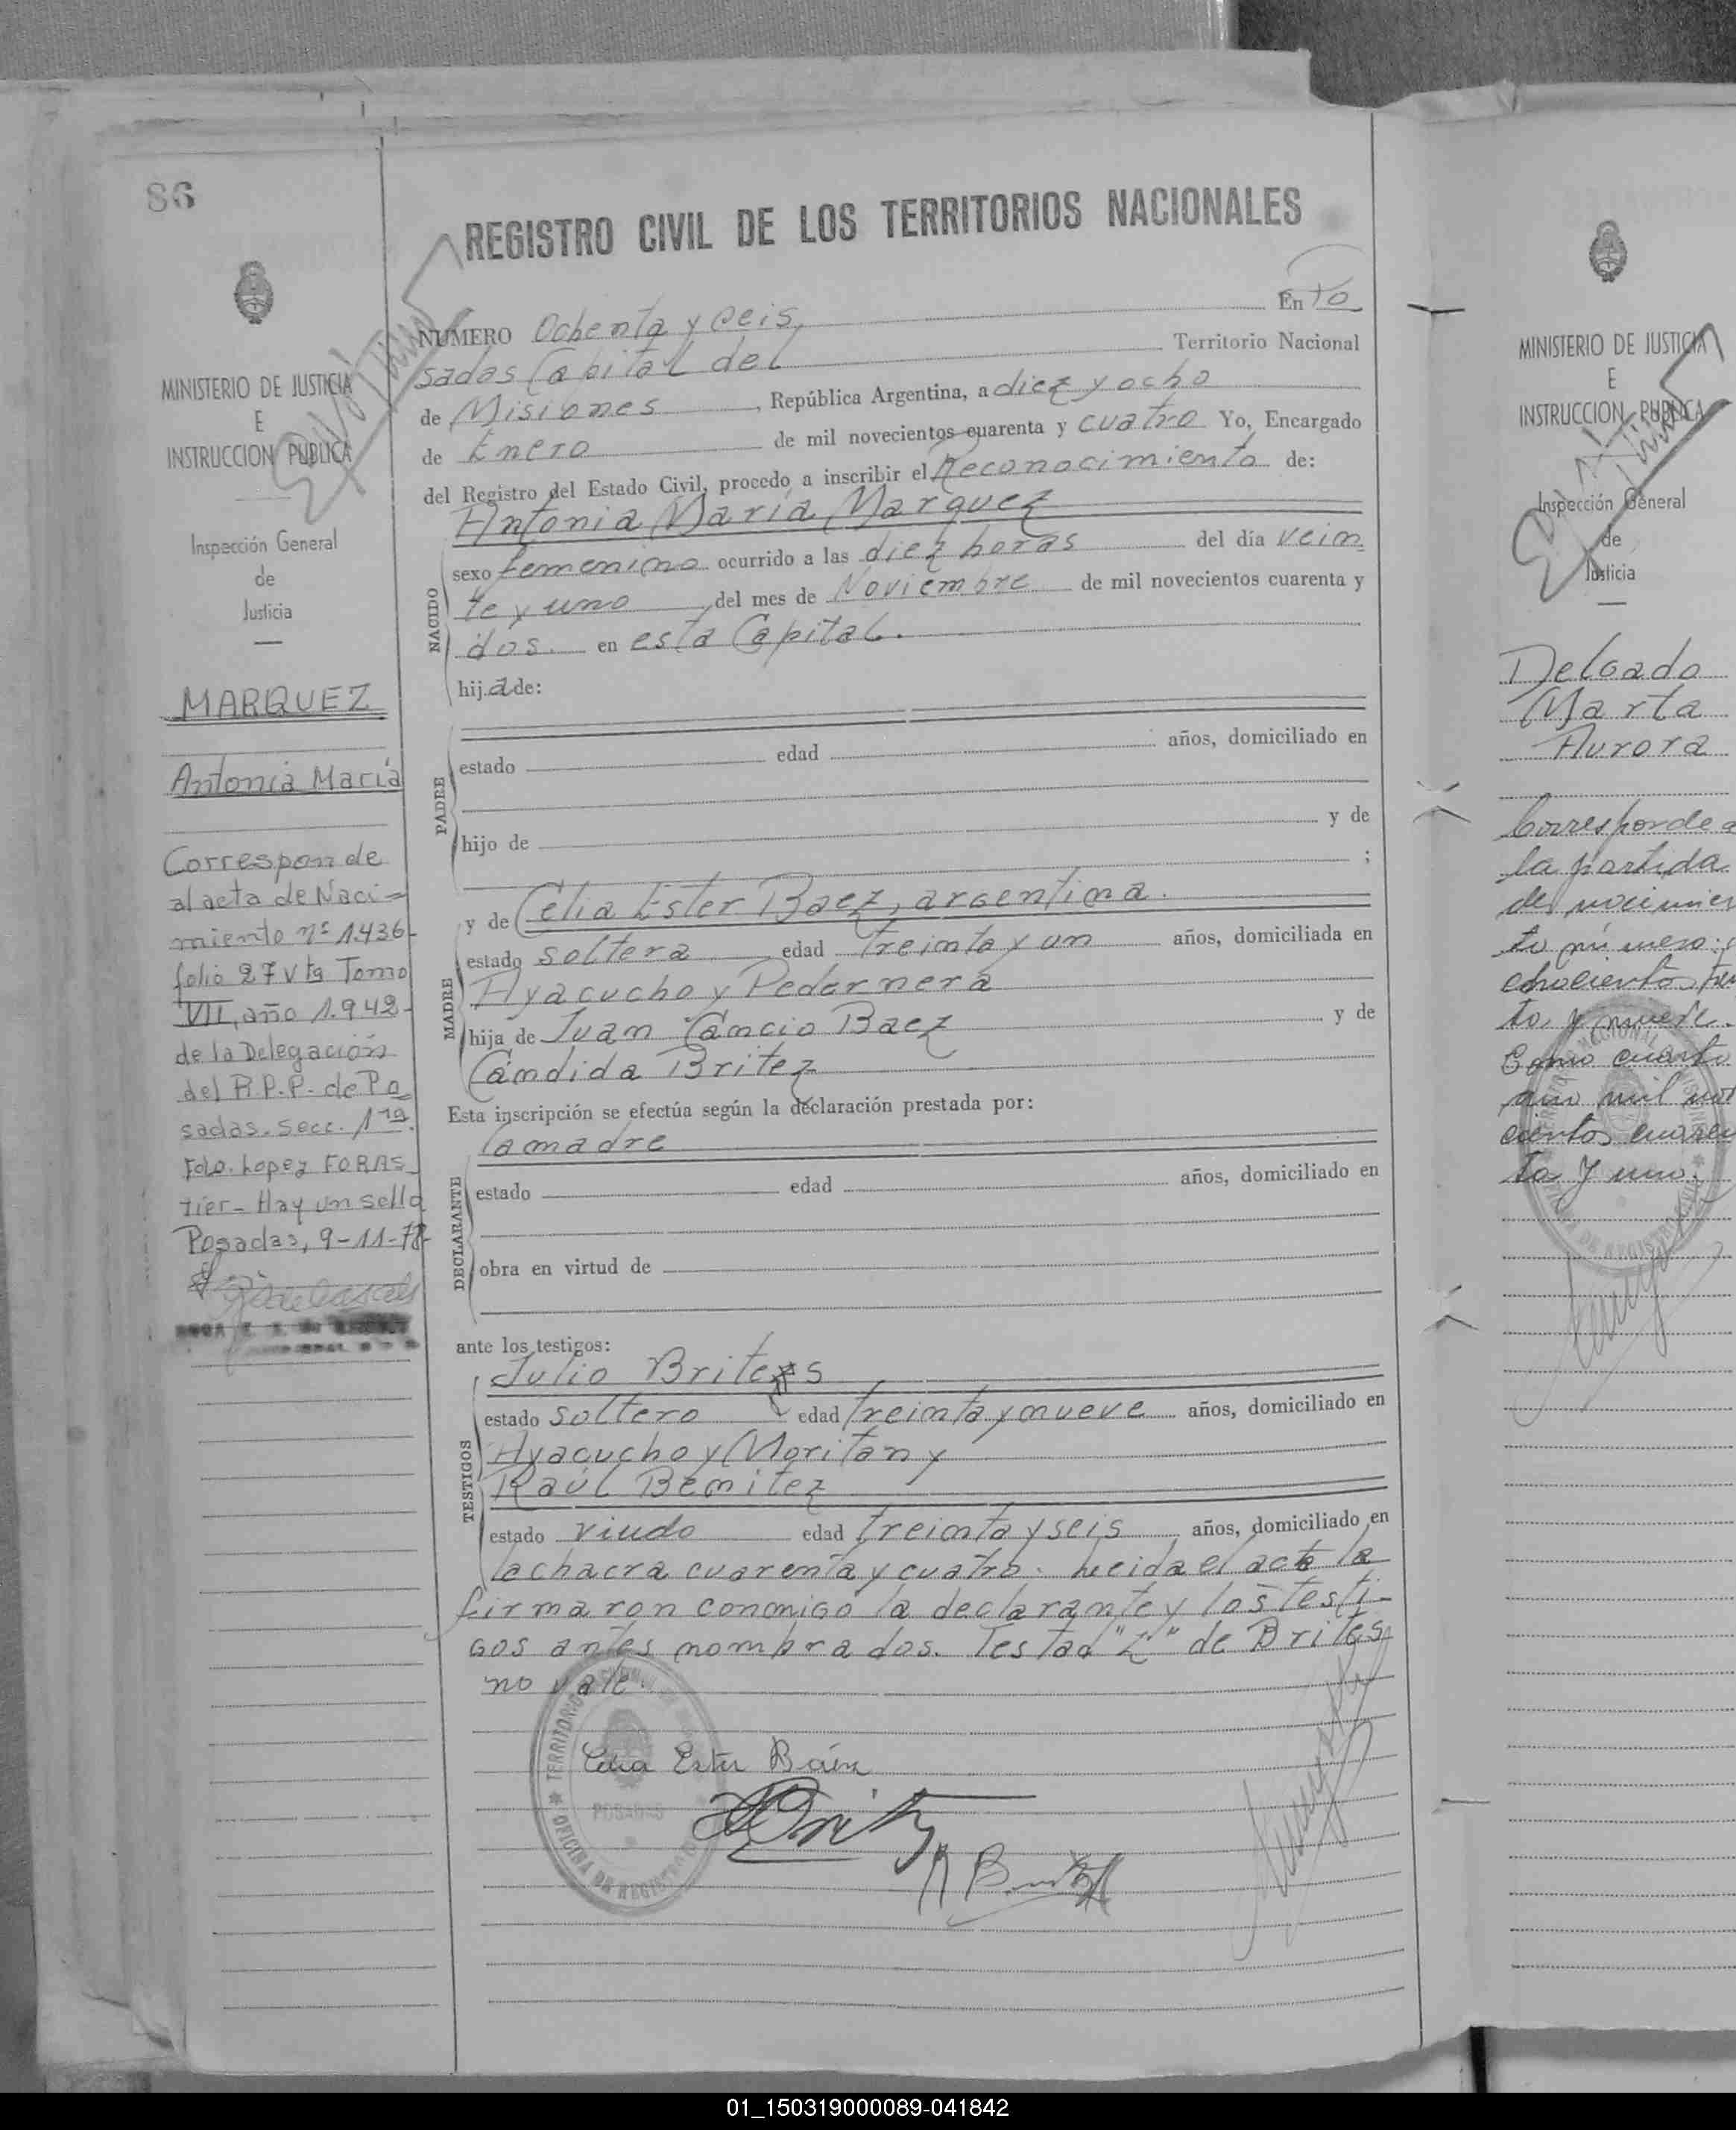 86
REGISTRO CIVIL DE LOS TERRITORIOS NACIONALES
MINISTERIO DE JUSTICIA
E
INSTRUCCION PUBLICA
Inspección General
de
Justicia
MARQUEZ
Antonia María
Corresponde
al acta de Naci=
miento nº 1436-
folio 27 vta Tomo
VII, año 1.942-
de la Delegación
del R.P.P. de Po
sadas. Secc. 1ra.
Fdo. Lopez FORAS
tier- Hay un sello
Posadas, 9-11-78-
NUMERO Ochenta y seis, En Po
sadas Capital del Territorio Nacional
de Misiones, República Argentina, a diez y ocho
de Enero de mil novecientos cuarenta y cuatro Yo, Encargado
del Registro del Estado Civil, procedo a inscribir el Reconocimiento de:
Antonia María Marquez
NACIDO
sexo femenino ocurrido a las diez horas del día vein
te y uno del mes de Noviembre de mil novecientos cuarenta y
dos. en esta Capital.
hija de:
PADRE
estado edad años, domiciliado en
hijo de y de
;
y de Celia Ester Baez, argentina.
MADRE
estado soltera edad treinta y un años, domiciliada en
Ayacucho y Pedernera
hija de Juan Cancio Baez y de
Cándida Britez
Esta inscripción se efectúa según la declaración prestada por:
la madre
DECLARANTE
estado edad años, domiciliado en
obra en virtud de
ante los testigos:
Julio Britezs
TESTIGOS
estado soltero edad treinta y nueve años, domiciliado en
Ayacucho y Moritan y
Raúl Benitez
estado viudo edad treinta y seis años, domiciliado en
la chacra cuarenta y cuatro. Leida el acta la
firmaron conmigo la declarante y los testi-
gos antes nombrados. Testad "Z" de Brites
no vale.
TERRITORIO
POSADAS
OFICINA DE REGISTRO
Celia Ester Báez
MINISTERIO DE JUSTICIA
E
INSTRUCCION PUBLICA
Inspección General
de
Justicia
Delgado
Marta
Aurora
Corresponde a
la partida
de
to número:
to y nueve.
Como cuarto
año mil nov
cientos cuaren
ta y uno.
01_150319000089-041842